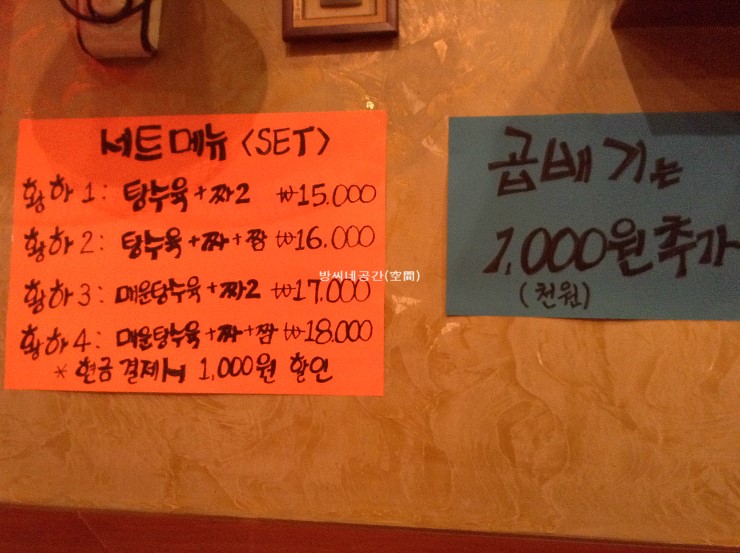 서트메뉴 <SET>
황하1: 탕수육+짜2 ₩15.000
황하2: 탕수육+짜+짬 ₩16.000
황하3: 매운탕수육+짜2 ₩17.000
황하4: 매운탕수육+짜+짬 ₩18.000
* 현금결제시 1,000원 할인
곱배기는
1,000원추가
(천원)
방씨네공간(空間)